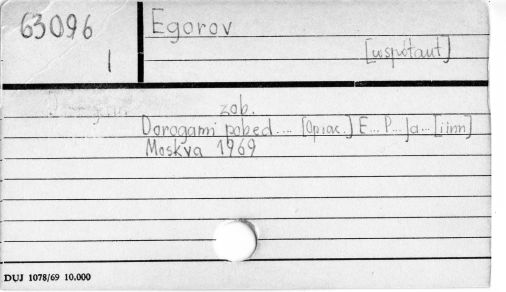 63096
I
Egorov
[współaut]
zob.
Dorogami pobed.... [Oprac.] E... P... Ja... [i inn]
Moskva 1969
DUJ 1078/69 10.000